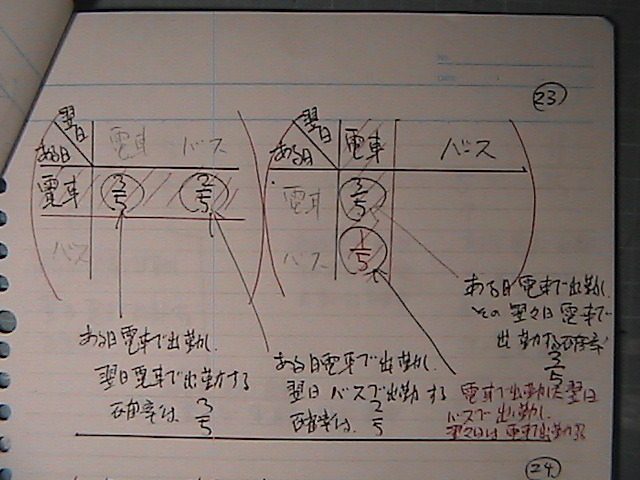 No.
DATE
23
翌日
ある日
電車 バス
電車 3/5 2/5
バス
翌日
ある日
電車 バス
電車 3/5
バス 1/5
ある日電車で出勤し
翌日電車で出勤する
確率は 3/5
ある日電車で出勤し
翌日バスで出勤する
確率は 2/5
ある日電車で出勤し
その翌々日電車で
出勤する確率
3/5
電車で出勤した翌日
バスで出勤し
翌々日は電車で出勤する
24